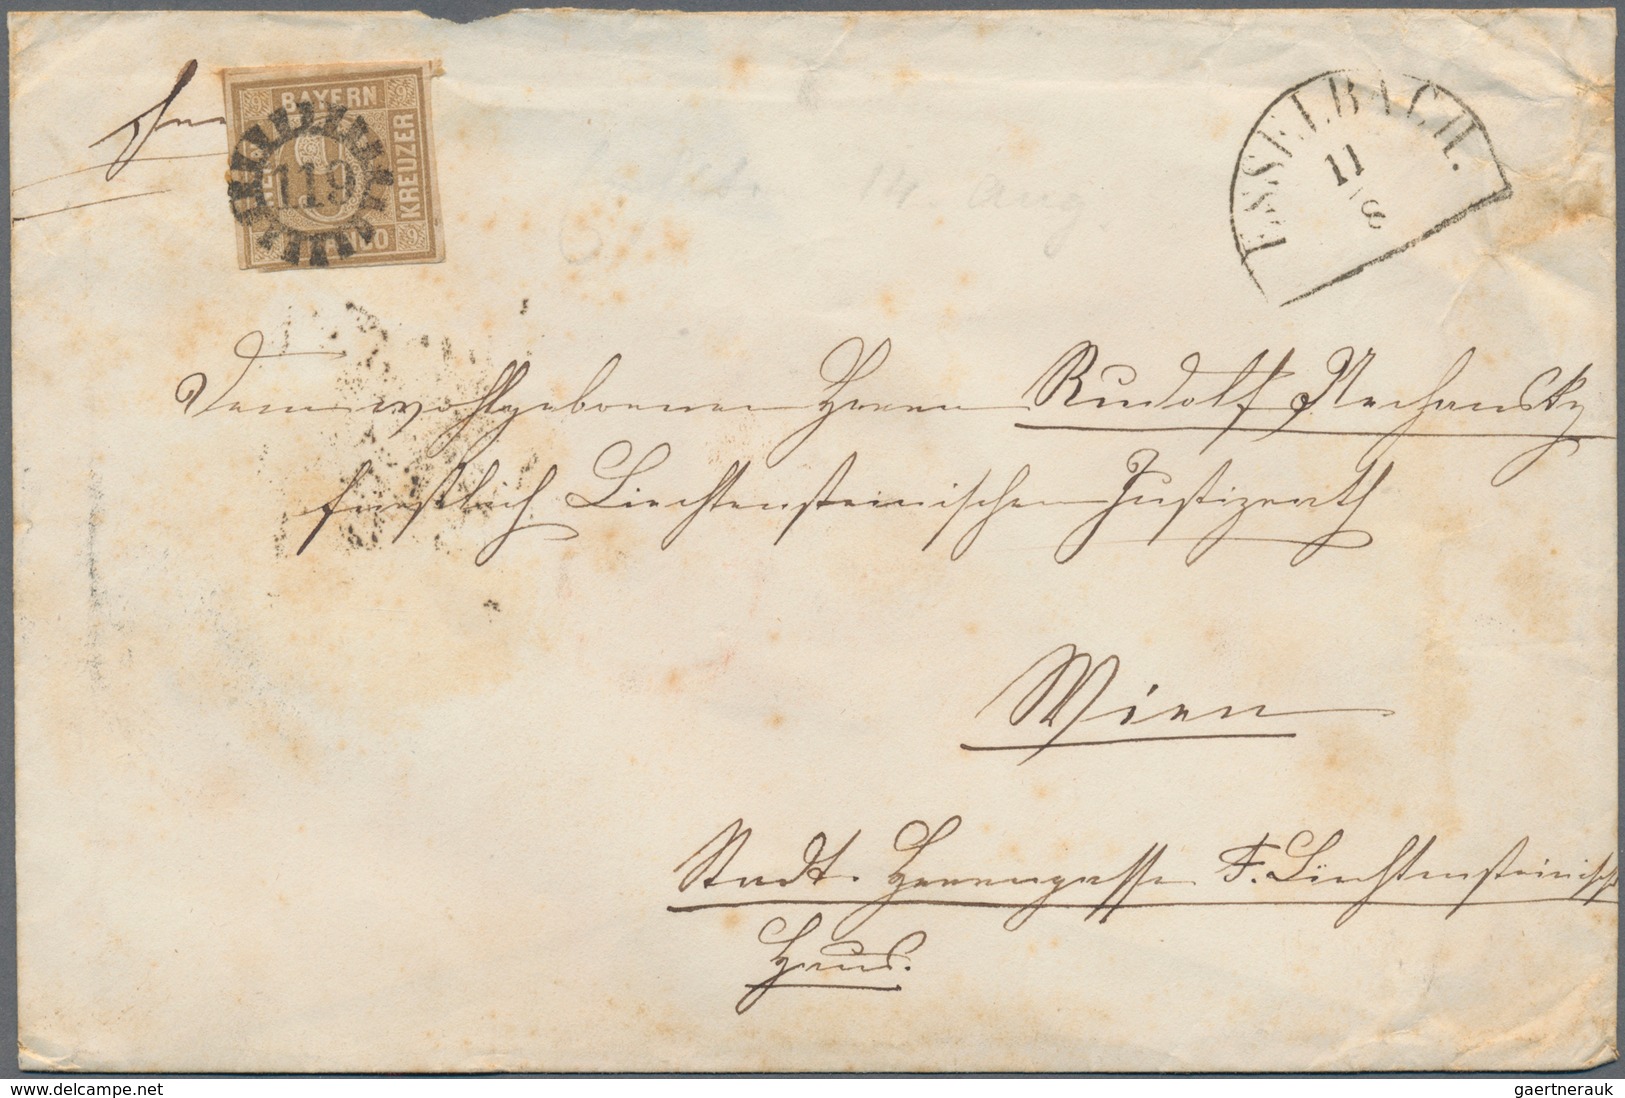 9 BAYERN 9
KREUZER
119
9
ESSELBACH.
11
/8
14. Aug
Dem wohlgebornen Herrn Rudolf Nechansky
fürstlich Liechtensteinischen Justizrath
Wien
Stadt. Herrengasse F. Liechtensteinisch
Haus.
www.delcampe.net
gaertnerauk